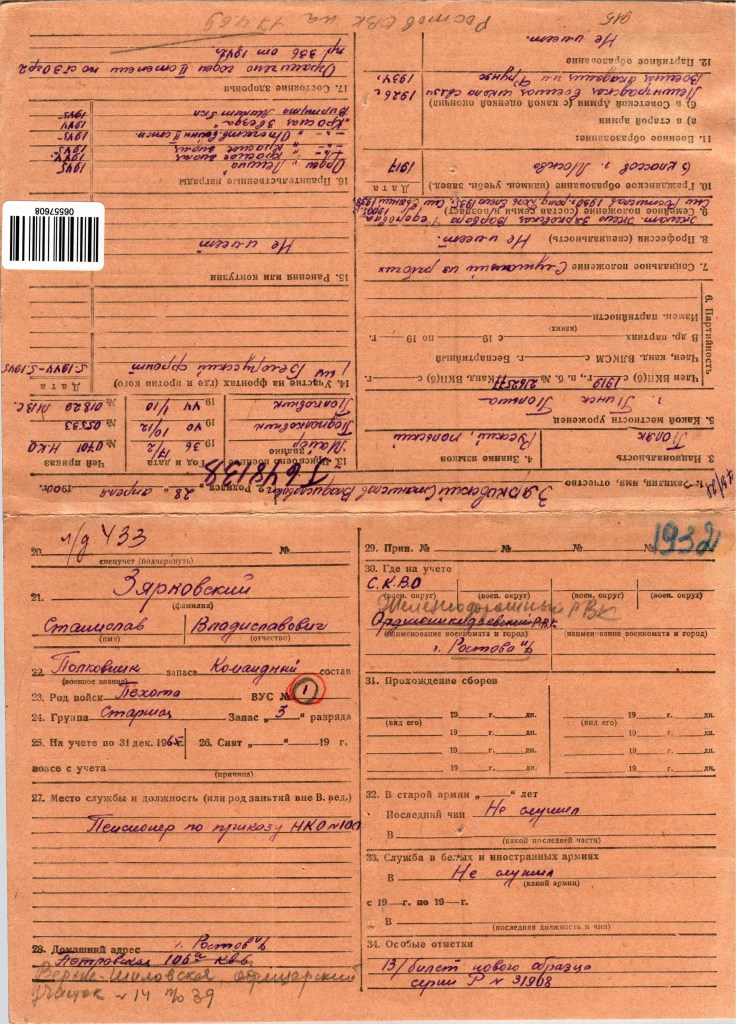 1. Фамилия, имя, отчество Зярковский Станислав Владиславович
2. Родился „28“ апреля 1900 г.
Т648138
3. Национальность Поляк
4. Знание языков Русский, польский
5. Какой местности уроженец г. Пинск Польша
6. Партийность
Член ВКП(б) с 1919 г., п. б. № 2162577
Канд. ВКП(б) с г.
Член, канд. ВЛКСМ Беспартийный
В др. партиях с 19 г. по 19 г.
(каких)
Измен. партийности
7. Социальное положение Служащий из рабочих
8. Профессия (специальность) Не имеет.
9. Семейное положение (состав семьи и возраст)
Женат жена Зярковская Варвара Федоровна
10. Гражданское образование (наимен. учебн. завед.) Дата
6 классов г. Москва 1917
11. Военное образование:
а) в старой армии
б) в Советской Армии (с какой оценкой окончил)
Ленинградская военная школа связи 1926 г.
Военная академия им Фрунзе 1934 г.
12. Партийное образование
Не имеет.
915
13. Присвоено военное звание Год и дата Чей приказ
Майор 36 17/2 № 0401 НКО
Подполковник 40 10/12 № 05593
Полковник 44 1/10 № 01820 М.В.С.
14. Участие на фронтах (где и против кого) Дата
1 ый Белорусский фронт 5.1944-5.1945
15. Ранения или контузии
Не имеет
16. Правительственные награды
Орден „Ленина“ 1945
„Красное знамя“
„Красное знамя“ 1945
Отечеств. войны II степ.
„Красная Звезда“ 1944
Виртути Милитари 1945
17. Состояние здоровья
Ограничено годен II степени по ст 30 гр 2
пр. 336 от 1942г.
Ростов ОВК на 17469
06557608
20. л/д 433 №
спецучет (подчеркнуть)
21. Зярковский
(фамилия)
Станислав Владиславович
(имя) (отчество)
22. Полковник запаса Командный состав
(военное звание)
23. Род войск Пехота ВУС № 1
24. Группа Старшая Запас „3“ разряда
25. На учете по 31 дек. 1965 26. Снят „ “ 19 г.
вовсе с учета
(причина)
27. Место службы и должность (или род занятий вне В. вед.)
Пенсионер по приказу НКО №100
28. Домашний адрес г. Ростов н/Д
Петровская 106а кв 6
участок №14 39
29. Прип. № № № №
1932
30. Где на учете
С.К.В.О
(воен. округ) (воен. округ) (воен. округ) (воен. округ)
Железнодорожный РВК
Орджоникидзевский РВК
(наименование военкомата и город) (наименование военкомата и город)
г. Ростова н/Д
31. Прохождение сборов
19 г. дн. 19 г. дн.
(вид его) (вид его)
19 г. дн. 19 г. дн.
19 г. дн. 19 г. дн.
19 г. дн. 19 г. дн.
32. В старой армии „ “ лет
Последний чин Не служил
В
(какой последней части)
33. Служба в белых и иностранных армиях
В Не служил
(какой армии)
с 19 г. по 19 г.
В
(последняя должность и чин)
34. Особые отметки
В/билет нового образца
серии Р N 31968